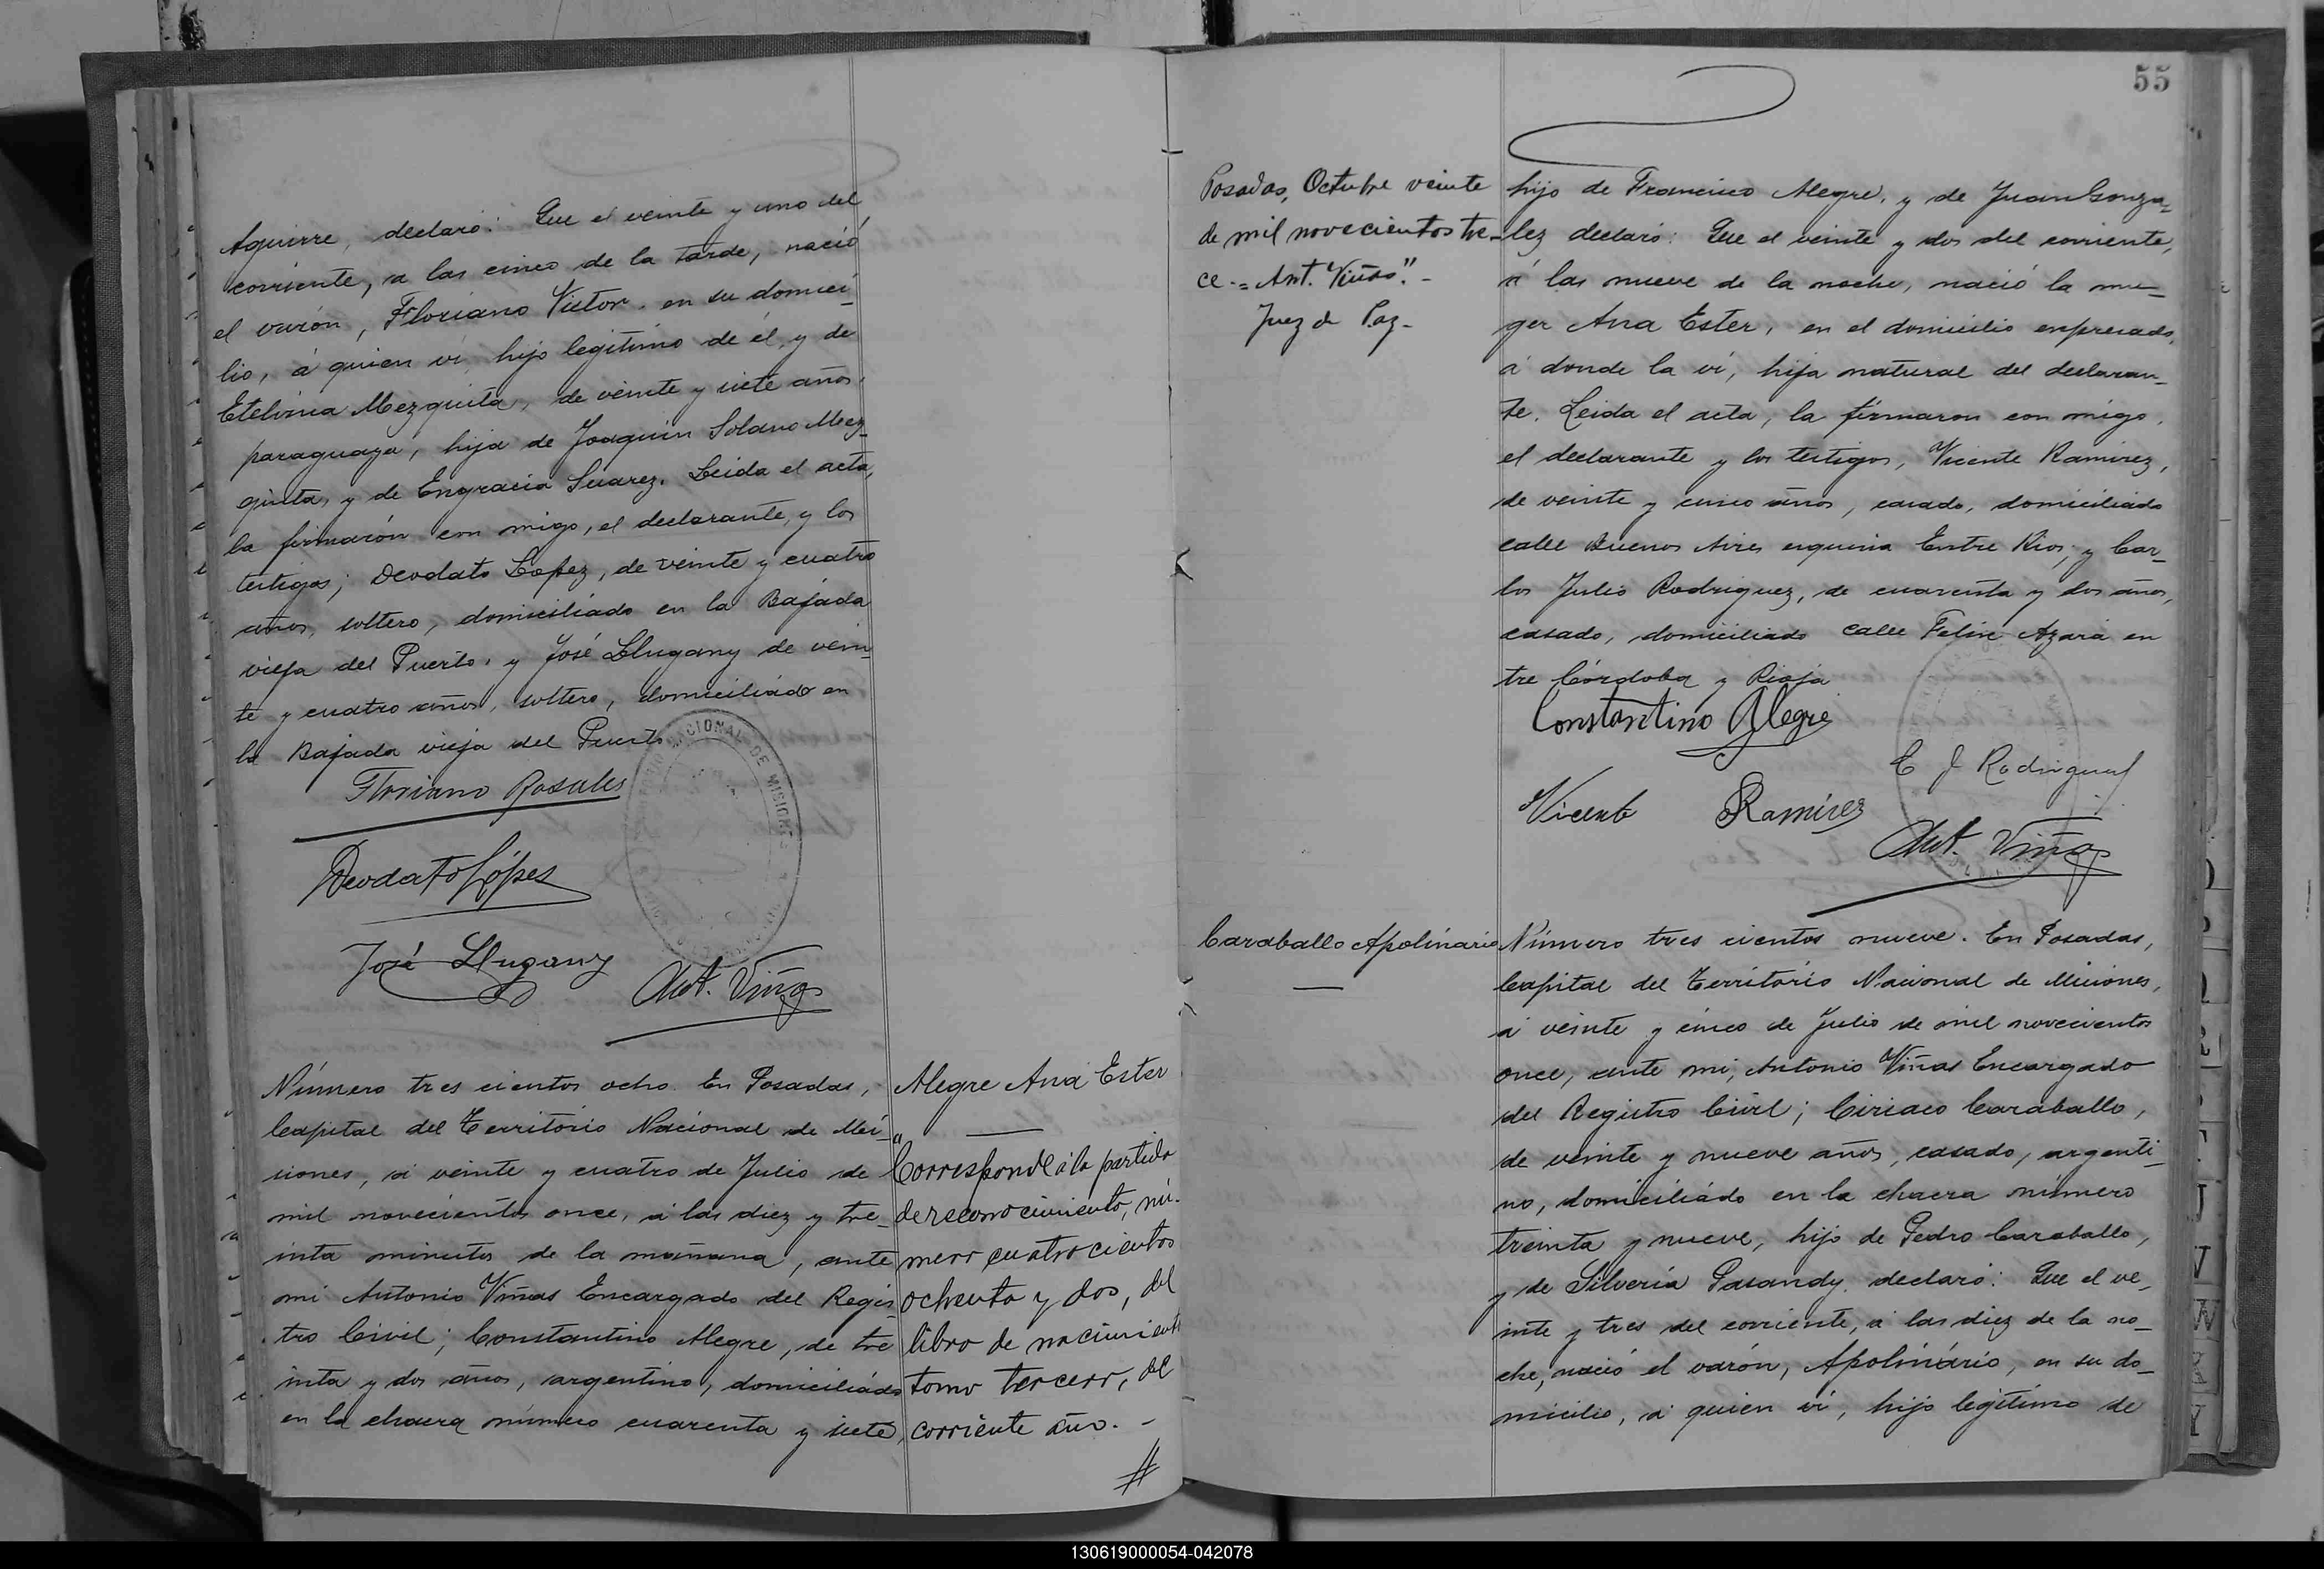 Aguirre, declaró: Que el veinte y uno del
corriente, a las cinco de la tarde, nació
el varón, Floriano Victor. en su domici-
lio, á quien ví, hijo legítimo de él, y de
Etelvina Mezquita, de veinte y siete años,
paraguaya, hija de Joaquin Solano Mez-
quita, y de Engracia Suarez. Leida el acta,
la firmarón con migo, el declarante, y los
testigos; Deodato Lopez, de veinte y cuatro
años, soltero, domiciliado en la Bajada
vieja del Puerto, y José Llugany de vein-
te y cuatro años, soltero, domiciliado en
la Bajada vieja del Puerto
Floriano Rosales
Deodato Lópes
José Llugany
Ant. Viñas
NACIONAL DE MISIONES
Número tres cientos ocho. En Posadas,
Capital del Território Nacional de Mi-
siones, á veinte y cuatro de Julio de
mil novecientos once, á las diez y tre-
inta minutos de la mañana, ante
mi Antonio Viñas Encargado del Regis-
tro Civil; Constantino Alegre, de tre
inta y dos años, argentino, domiciliado
en la chacra número cuarenta y siete,
Alegre Ana Ester
"Corresponde á la partida
de reconocimiento, nú-
mero cuatrocientos
ochenta y dos, del
libro de nacimiento
tomo tercero, del
corriente año. -
#
55
Posadas, Octubre veinte
de mil novecientos tre-
ce.= Ant. Viñas". -
Juez de Paz-
hijo de Francisco Alegre, y de Juan Gonza-
lez declaró: Que el veinte y dos del corriente,
á las nueve de la noche, nació la mu-
ger Ana Ester, en el domicilio expresado,
á donde la ví, hija natural del declaran-
te. Leida el acta, la firmaron con migo,
el declarante y los testigos, Vicente Ramirez,
de veinte y cinco años, casado, domiciliado
calle Buenos Aires esquina Entre Rios; y Car-
los Julio Rodriguez, de cuarenta y dos años,
casado, domiciliado calle Felix Azara en
tre Córdoba y Rioja
Constantino Alegre
C J Rodriguez
Vicente Ramírez
Ant. Viñas
Caraballo Apolinario
Número tres cientos nueve. En Posadas,
Capital del Território Nacional de Misiones,
á veinte y cinco de Julio de mil novecientos
once, ante mi, Antonio Viñas Encargado
del Registro Civil; Ciriaco Caraballo,
de veinte y nueve años, casado, argenti-
no, domiciliado en la chacra número
treinta y nueve, hijo de Pedro Caraballo,
y de Silveria Pasandy. declaró: Que el ve-
inte y tres del corriente, á las diez de la no-
che, nació el varón, Apolinário, en su do-
micilio, á quien ví, hijo legítimo de
130619000054-042078